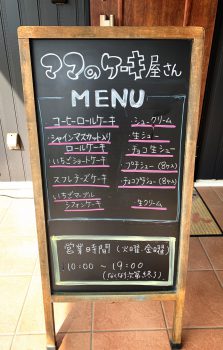 ママのケーキ屋さん
MENU
コーヒーロールケーキ
シャインマスカット入り
ロールケーキ
いちごショートケーキ
スフレチーズケーキ
いちごマーブル
シフォンケーキ
シュークリーム
生シュー
チョコ生シュー
プチシュー(8ヶ入)
チョコプチシュー(8ヶ入)
生クリーム
営業時間(火曜・金曜)
10:00〜19:00
(なくなり次第終了)